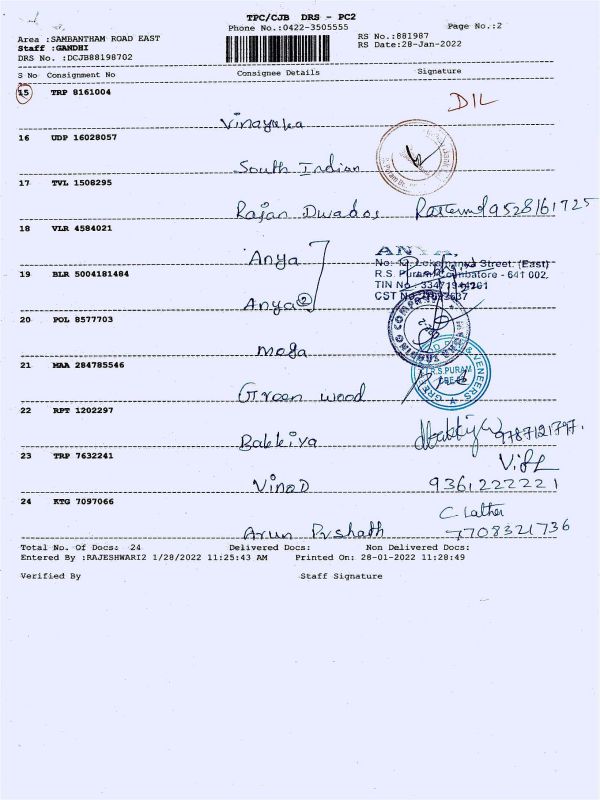 TPC/CJB DRS - PC2
Phone No.:0422-3505555
Page No.:2
Area :SAMBANTHAM ROAD EAST
RS No.:881987
Staff :GANDHI
RS Date:28-Jan-2022
DRS No. :DCJB88198702
S No Consignment No Consignee Details Signature
15 TRP 8161004
Vinayaka DIL
16 UDP 16028057
South Indian
17 TVL 1508295
Rajan Dwados 9528161725
18 VLR 4584021
Anya
ANYA.
Street. (East)
R.S. Puram, Coimbatore - 641 002.
TIN No.
CST No.
19 BLR 5004181484
Anya 2
20 POL 8577703
moga
21 MAA 284785546
Green wood
R.S.PURAM
CBE-2
& VENEERS
22 RPT 1202297
Bakkiya 9787121797.
23 TRP 7632241
Vinod 9361222221
24 KTG 7097066
Arun Prshath C. Lather
7708321736
Total No. Of Docs: 24 Delivered Docs: Non Delivered Docs:
Entered By :RAJESHWARI2 1/28/2022 11:25:43 AM Printed On: 28-01-2022 11:28:49
Verified By Staff Signature